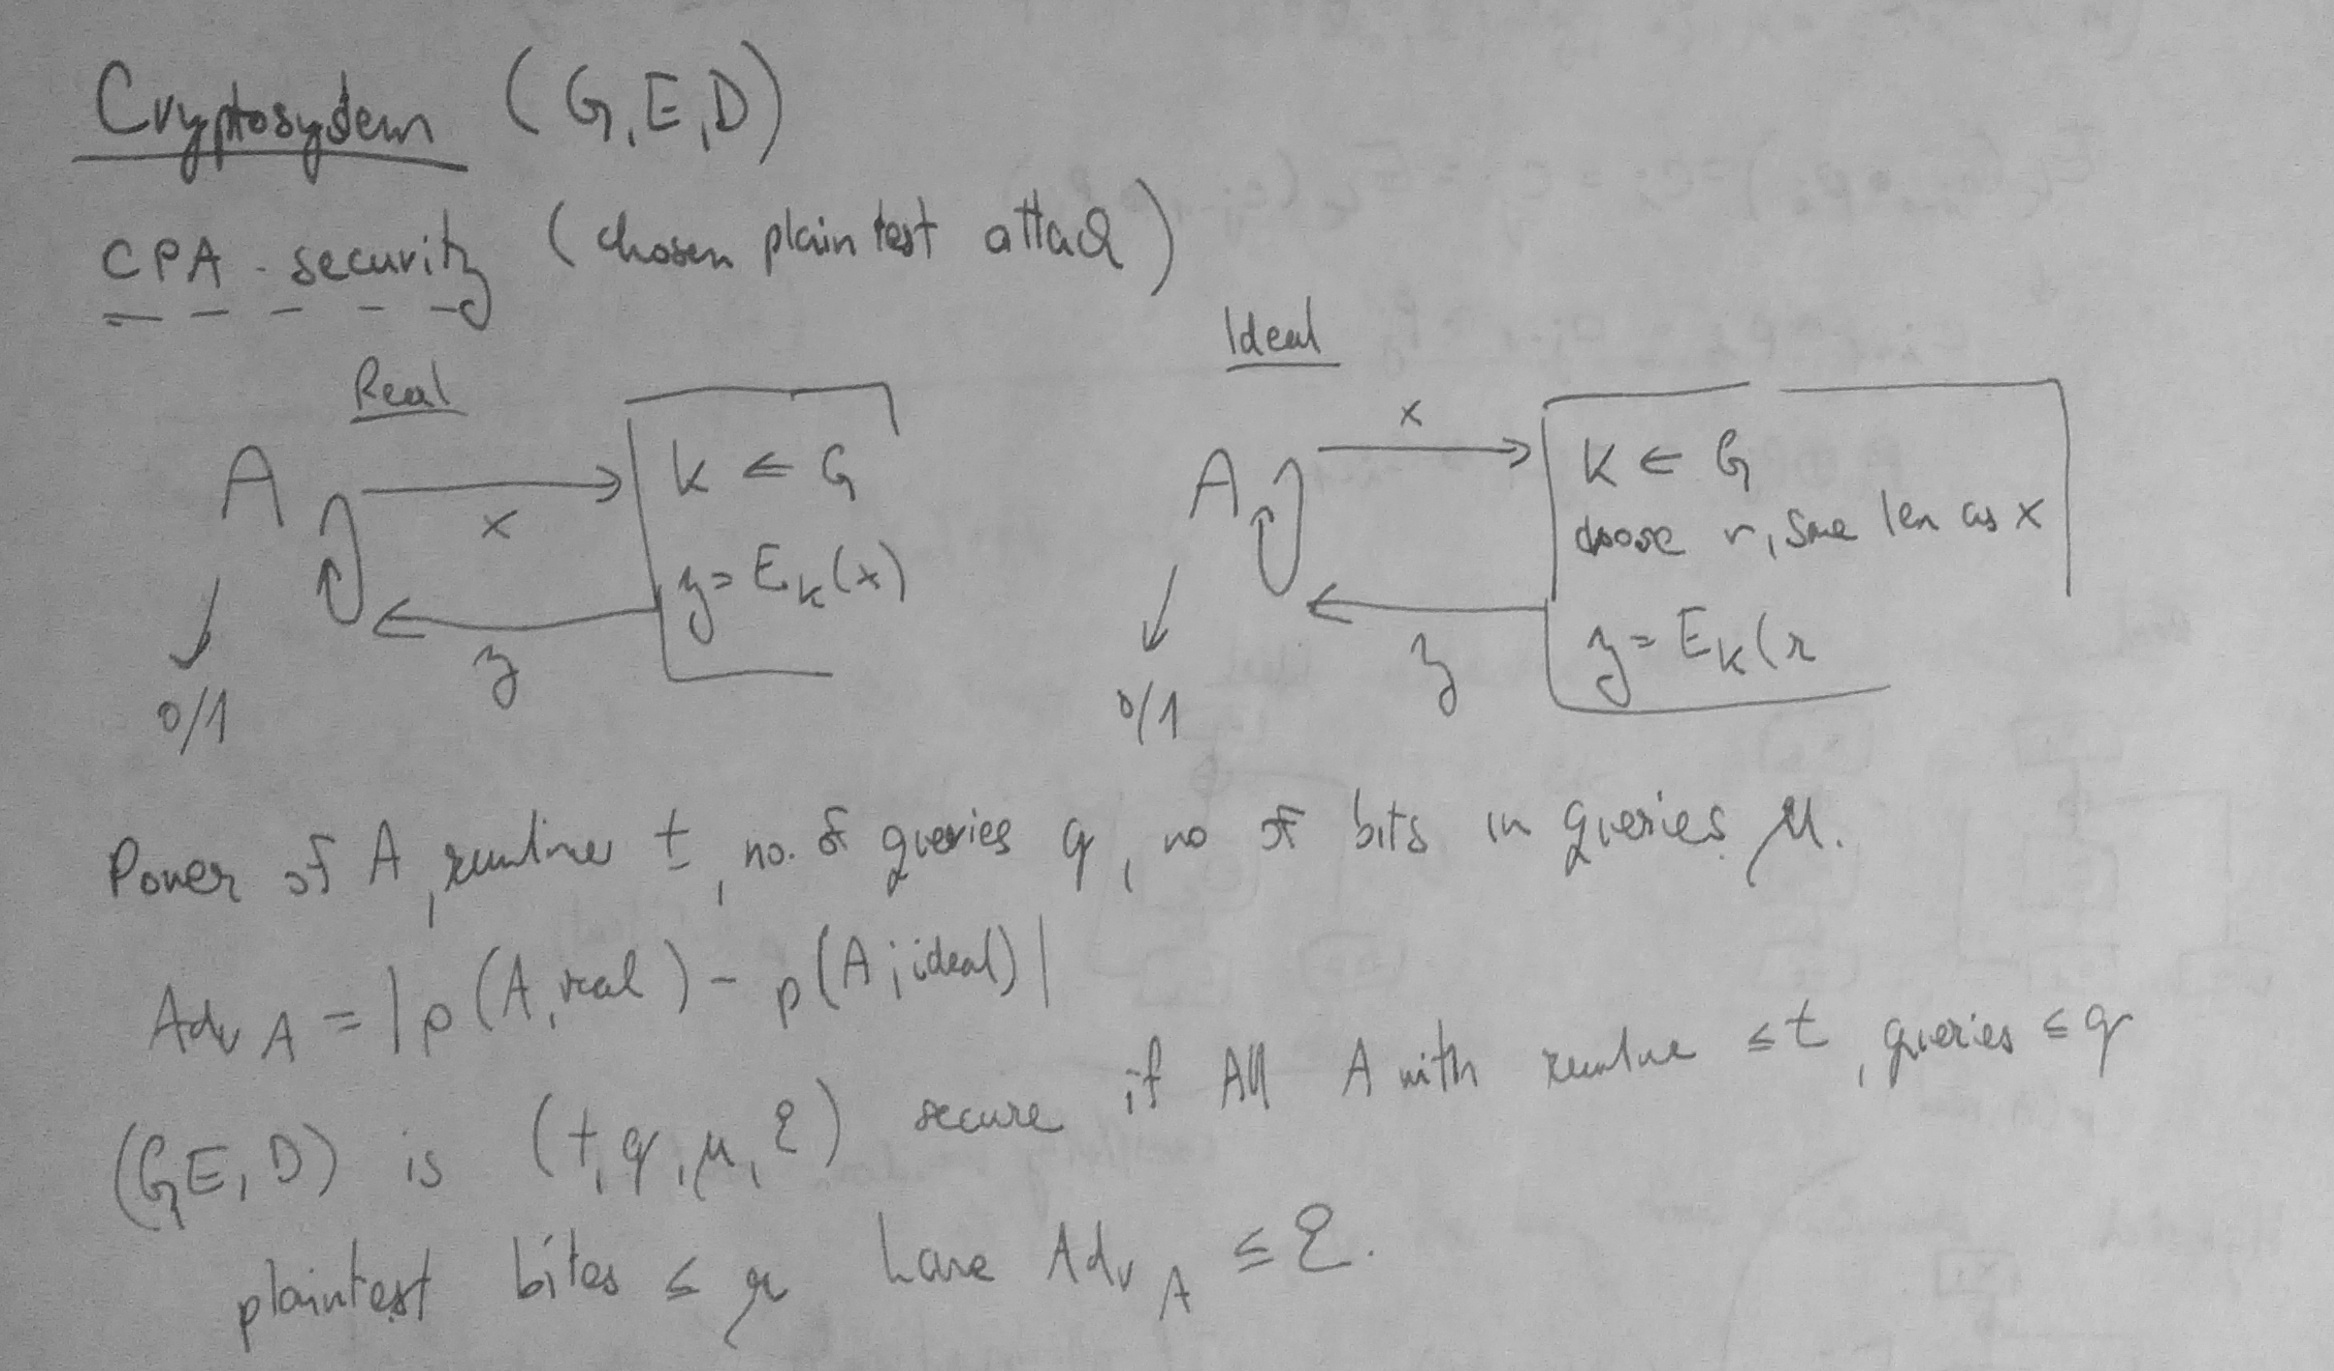 Cryptosystem (G,E,D)
CPA-security (chosen plaintext attack)
Real
A
x
K ← G
y = E_K(x)
y
0/1
Ideal
A
x
K ← G
choose r, same len as x
y = E_K(r
y
0/1
Power of A, runtime t, no. of queries q, no of bits in queries μ.
Adv_A = |p(A, real) - p(A; ideal)|
(G,E,D) is (t,q,μ,ε) secure if All A with runtime ≤ t, queries ≤ q
plaintext bites ≤ μ have Adv_A ≤ ε.